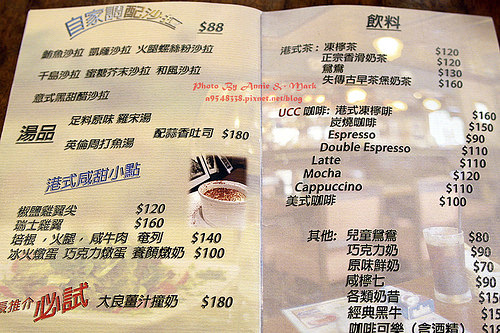 自家開配沙汁 $88
鮪魚沙拉 凱薩沙拉 火腿螺絲粉沙拉
千島沙拉 蜜糖芥末沙拉 和風沙拉
意式黑甜醋沙拉
湯品
足料原味 羅宋湯
英倫周打魚湯
配蒜香吐司 $180
港式咸甜小點
椒鹽雞翼尖 $120
瑞士雞翼 $160
培根，火腿，咸牛肉 奄列 $140
冰火燉蛋 巧克力燉蛋 養顏燉奶 $100
推介 必試 大良薑汁撞奶 $180
飲料
港式茶： 凍檸茶 $120
正宗香滑奶茶 $120
鴛鴦 $130
失傳古早茶煲奶茶 $160
Photo By Annie & Mark
a9548338.pixnet.net/blog
UCC 咖啡: 港式凍檸啡 $160
炭燒咖啡 $150
Espresso $90
Double Espresso $110
Latte $110
Mocha $120
Cappuccino $110
美式咖啡 $100
其他: 兒童鴛鴦 $80
巧克力奶 $90
原味鮮奶 $70
咸檸七 $90
各類奶昔
經典黑牛
咖啡可樂（含酒精）